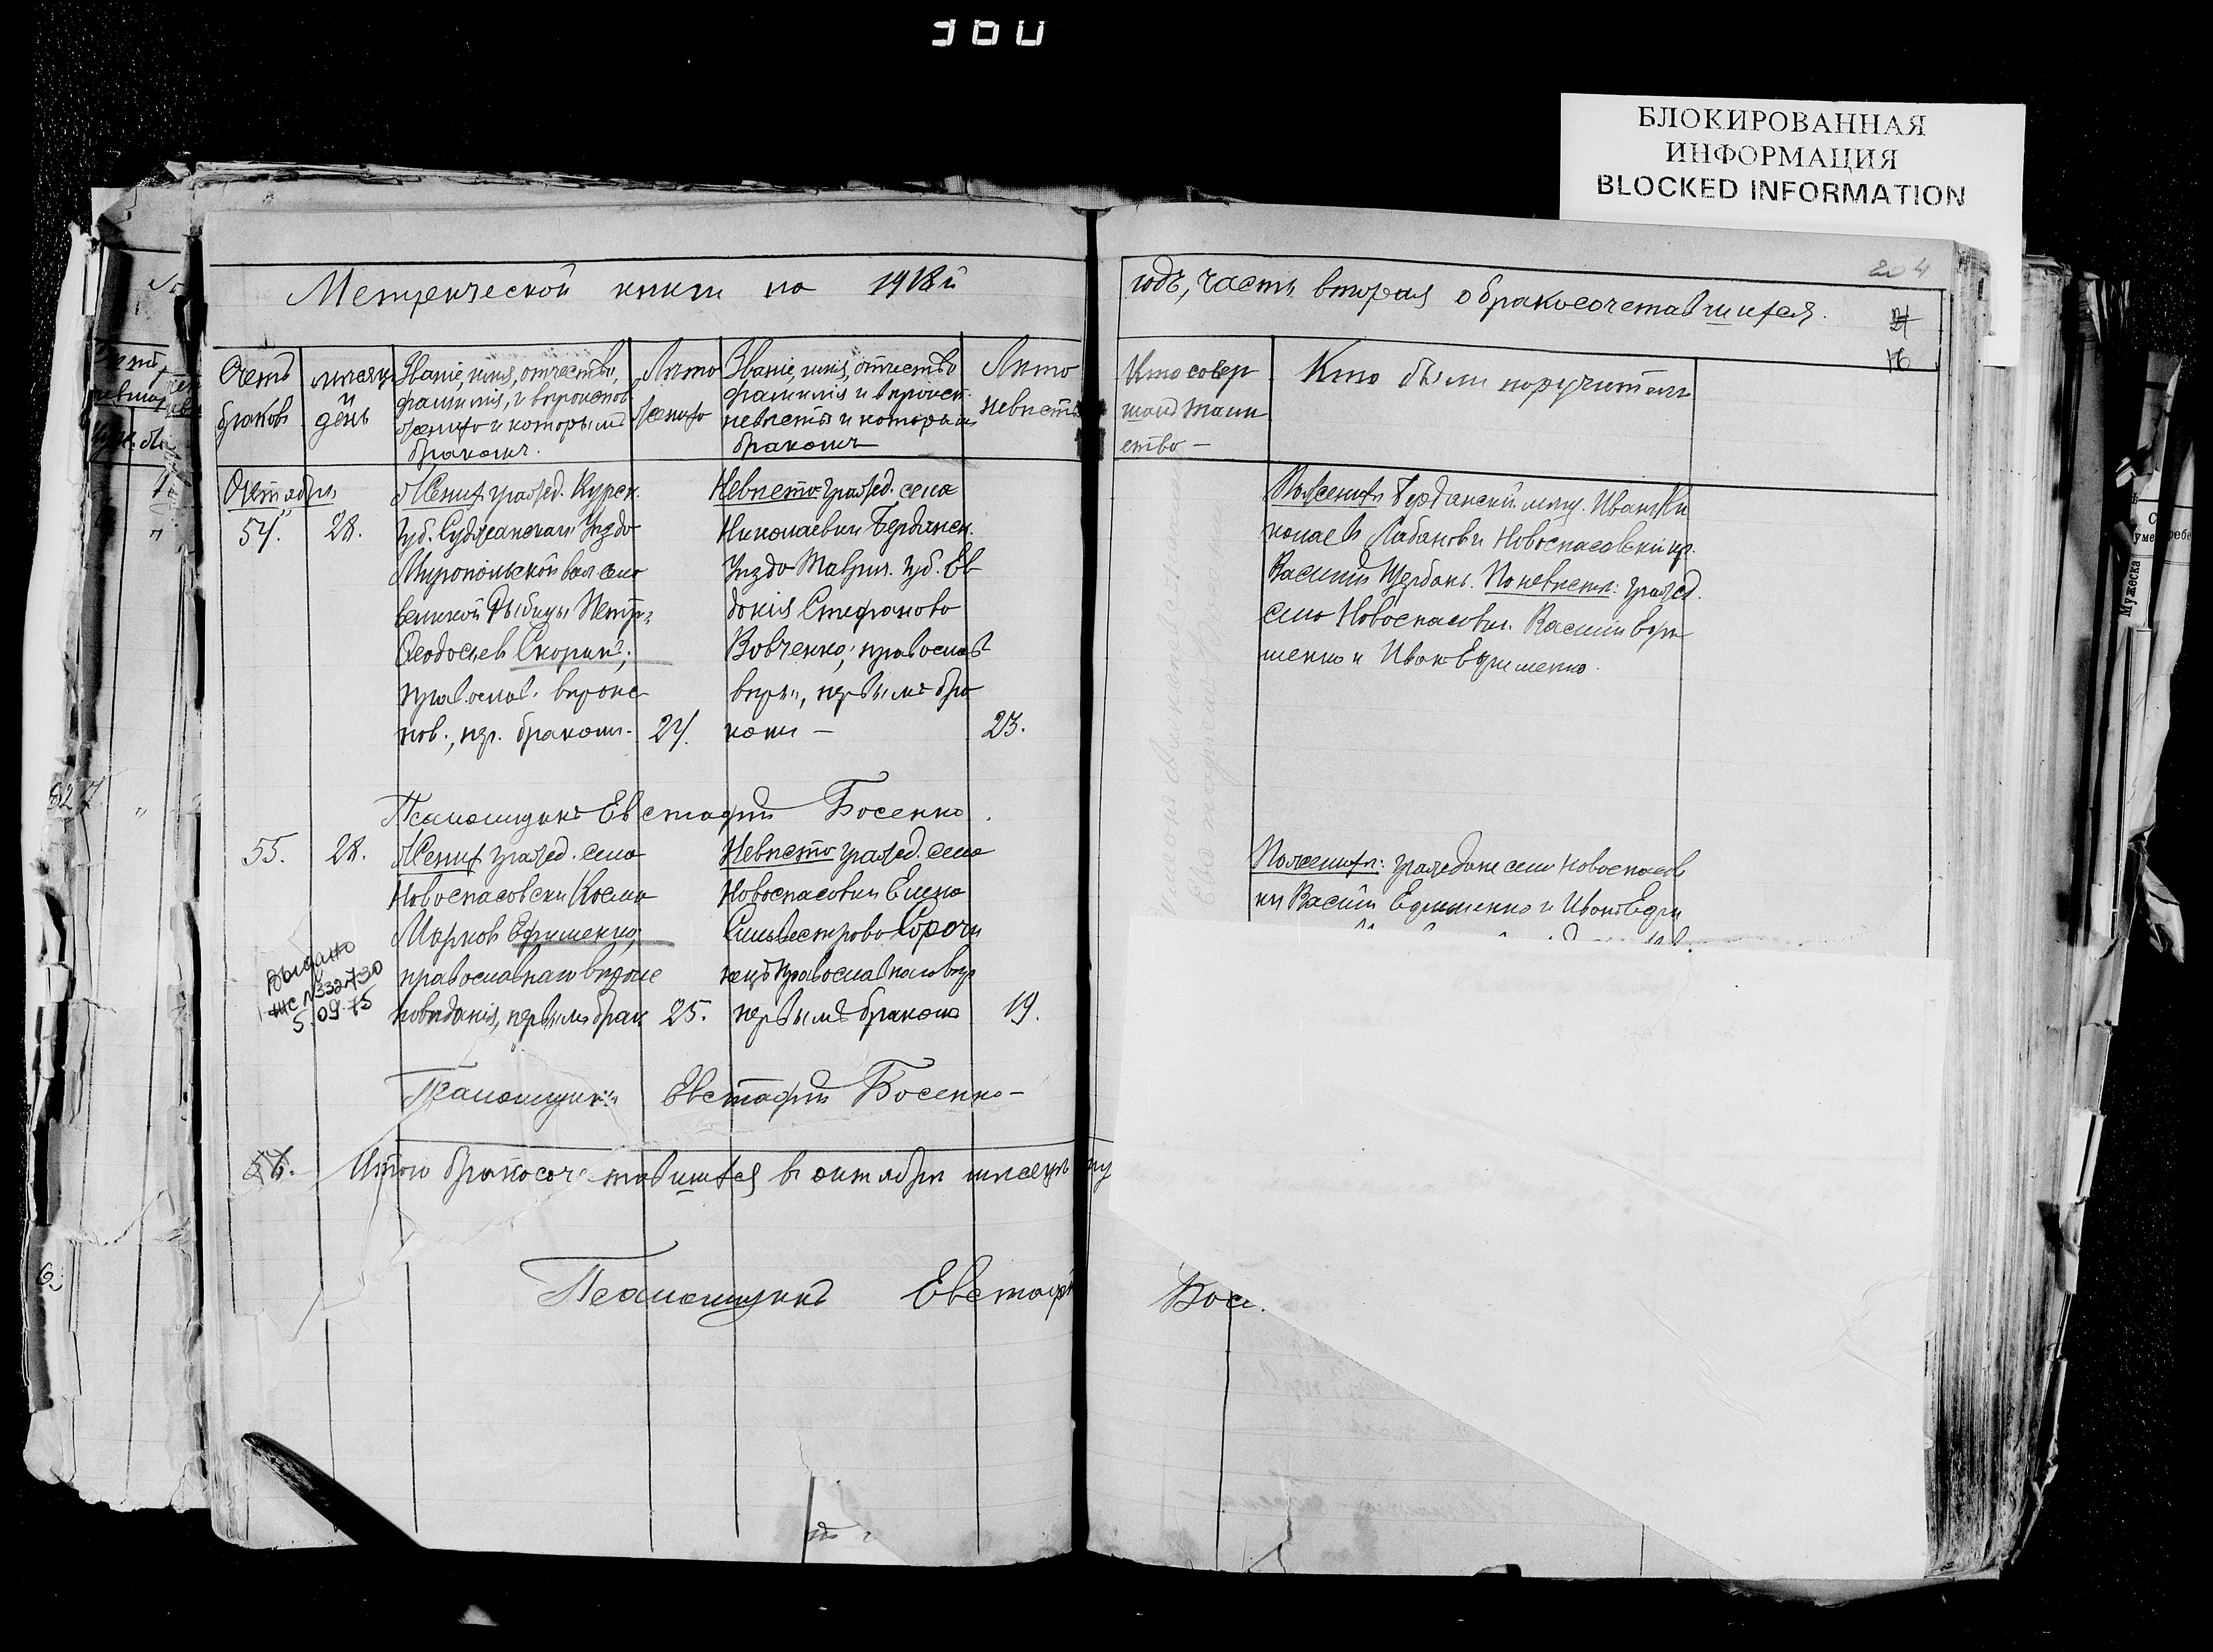 360
БЛОКИРОВАННАЯ
ИНФОРМАЦИЯ
BLOCKED INFORMATION
Метрической книги на 1918й
годъ, часть вторая о бракосочетавшихся.
204
21
16
Счетъ
браковъ
месяцъ
и
день
Званіе, имя, отчество,
фамилія, и вероиспов.
жениха и которымъ
бракомъ.
Лета
жениха
Званіе, имя, отчество
фамилія и вероисп.
невесты и которым
бракомъ
Лета
невесты
Кто совер
шалъ таин
ство —
Кто были поручители
Октября
54.
28.
Женихъ гражд. Курск.
губ. Суджанскаго Уезда
Миропольской вол. села
Великой Рыбицы Петръ
Феодосіев Скорик;
православ. вероис
пов., пер. бракомъ.
24.
Невеста гражд. села
Николаевки Бердянск.
Уезда Таврич. губ. Ев
докія Стефанова
Вовченко; православ
веры, первымъ бра
комъ —
23.
По женихе Бердянскій мещ. Иванъ Ни
колаевъ Лабановъ и Новоспасовский гр.
Василій Щербань. По невесте: гражд.
села Новоспасовки Василій
и Иван Ефименко.
Псаломщикъ Евстафій Босенко.
55.
28.
Женихъ гражд. села
Новоспасовки Косма
Марков Ефименко,
православнаго вероис
поведанія, первымъ брак
25.
Невеста гражд. села
Новоспасовки Елена
Сильвестрова Сорочи
православнаго вер
первымъ бракомъ
19.
По женихе: граждане села Новоспасов
ки Василій Ефименко и Иванъ Ефи
Выдано
№332730
5.09.75
Псаломщикъ Евстафій Босенко —
56.
Итого бракосочетавшихся въ октябре месяце
Псаломщикъ Евстафі Бос.